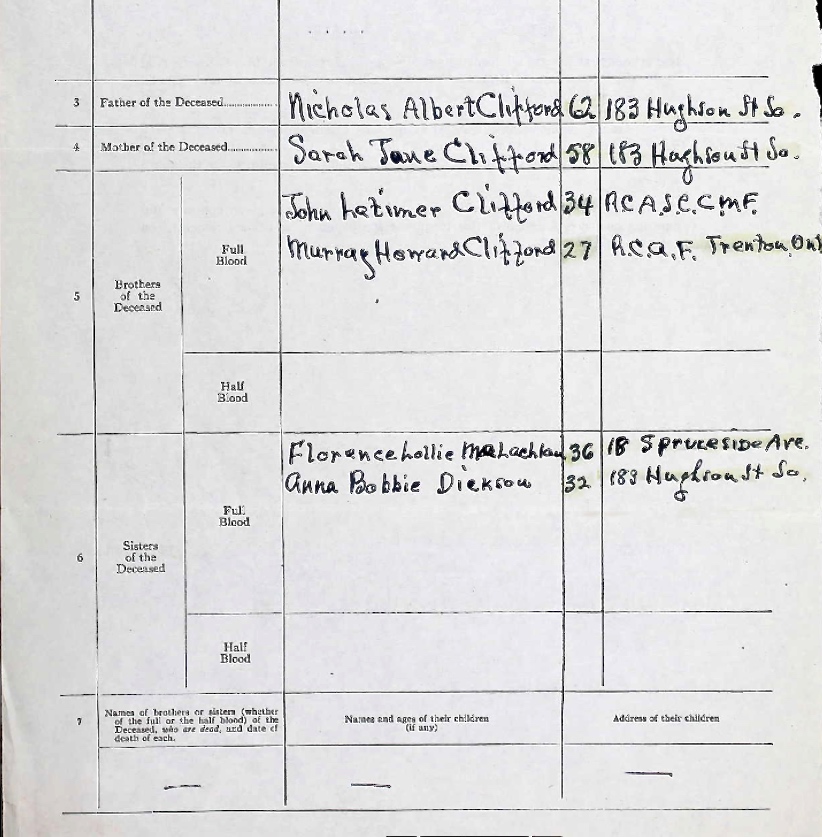 3 Father of the Deceased.................. Nicholas Albert Clifford 62 183 Hughson St So.
4 Mother of the Deceased................. Sarah Jane Clifford 58 183 Hughson St So.
John Latimer Clifford 34 R.C.A.S.C. C.M.F.
Full
Blood
Murray Howard Clifford 27 R.C.A.F. Trenton, Ont
5 Brothers
of the
Deceased
Half
Blood
Florence Lollie McLachlan 36 18 Spruceside Ave.
Anna Bobbie Dickson 32 183 Hughson St So.
Full
Blood
6 Sisters
of the
Deceased
Half
Blood
7 Names of brothers or sisters (whether
of the full or the half blood) of the
Deceased, who are dead, and date of
death of each.
Names and ages of their children
(if any)
Address of their children